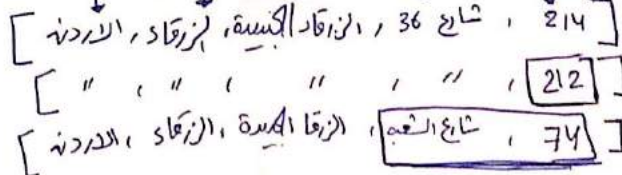 [ 214 , شارع 36 , الزرقاء الجديدة, الزرقاء , الأردن ]
[ 212 , " , " , " , " ]
[ 74 , شارع الشعب , الزرقا الجديدة , الزرقاء , الأردن ]